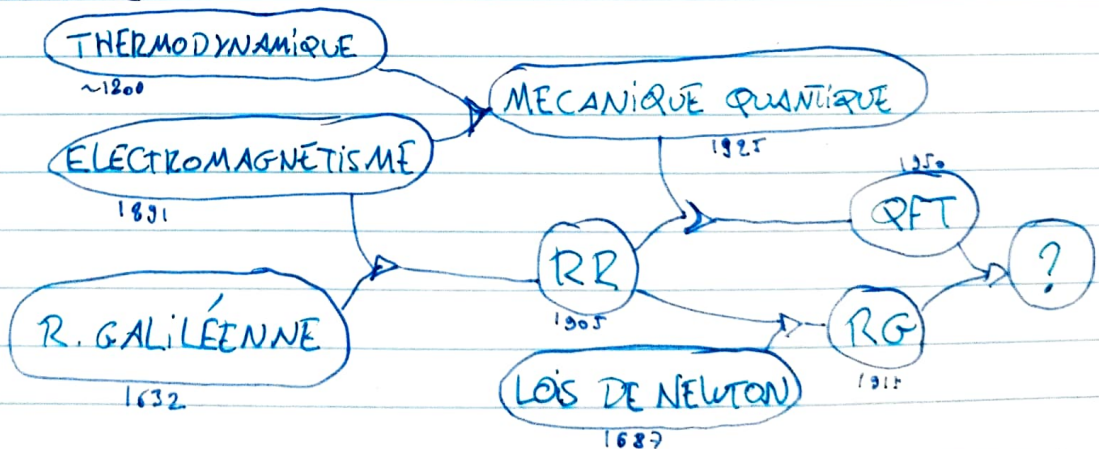 THERMODYNAMIQUE
~1800
MECANIQUE QUANTIQUE
1925
ELECTROMAGNÉTISME
1891
1950
QFT
RR
1905
?
R. GALILÉENNE
1632
RG
1915
LOIS DE NEWTON
1687